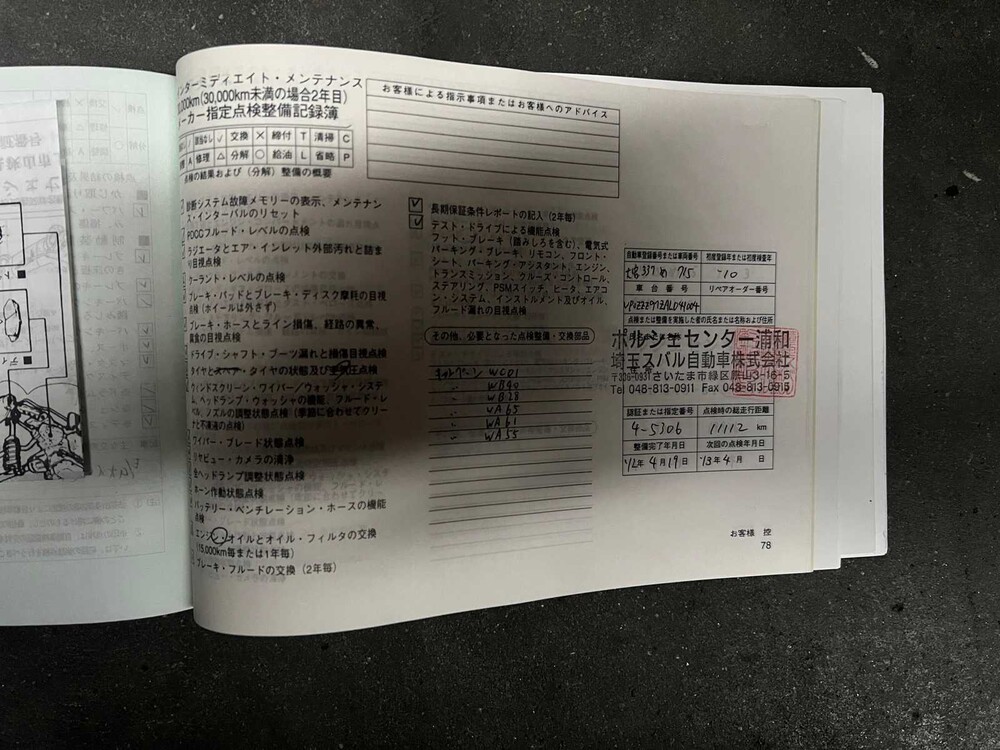 ンターミディエイト・メンテナンス
0,000km(30,000km未満の場合2年目)
ーカー指定点検整備記録簿
交換 × 締付 T 清掃 C
A 修理 △ 分解 ○ 給油 L 省略 P
点検の結果および（分解）整備の概要
お客様による指示事項またはお客様へのアドバイス
診断システム故障メモリーの表示、メンテナン
ス・インターバルのリセット
PDCCフルード・レベルの点検
ラジエータとエア・インレット外部汚れと詰ま
り目視点検
クーラント・レベルの点検
ブレーキ・パッドとブレーキ・ディスク摩耗の目視
点検（ホイールは外さず）
ブレーキ・ホースとライン損傷、経路の異常、
腐食の目視点検
ドライブ・シャフト・ブーツ漏れと損傷目視点検
タイヤとスペア・タイヤの状態及び空気圧点検
ウィンドスクリーン・ワイパー／ウォッシャ・システ
ム、ヘッドランプ・ウォッシャの機能、フルード・レ
ベル、ノズルの調整状態点検（季節に合わせてクリー
ナと不凍液の点検）
ワイパー・ブレード状態点検
リヤビュー・カメラの清浄
全ヘッドランプ調整状態点検
ホーン作動状態点検
バッテリー・ベンチレーション・ホースの機能
点検
エンジン・オイルとオイル・フィルタの交換
(15,000km毎または1年毎)
ブレーキ・フルードの交換（2年毎）
長期保証条件レポートの記入（2年毎）
テスト・ドライブによる機能点検
フット・ブレーキ（踏みしろを含む）、電気式
パーキング・ブレーキ、リモコン、フロント・
シート、パーキング・アシスタント、エンジン、
トランスミッション、クルーズ・コントロール、
ステアリング、PSMスイッチ、ヒータ、エアコ
ン・システム、インストルメント及びオイル、
フルード漏れの目視点検
その他、必要となった点検整備・交換部品
キャンペーン WC01
〃 WB40
〃 WB28
〃 WA65
〃 WA61
〃 WA55
自動車登録番号または車両番号 初度登録年または初度検査年
337 め 715 '10 3
車台番号 リペアオーダー番号
WP0ZZZ97ZAL041004
点検または整備を実施した者の氏名または名称および住所
ポルシェセンター浦和
埼玉スバル自動車株式会社
さいたま市緑区原山3-16-5
Tel 048-813-0911 Fax 048-813-0915
認証または指定番号 点検時の総走行距離
4-5306 11112 km
整備完了年月日 次回の点検年月日
'12年 4月 19日 '13年 4月 日
お客様 控
78